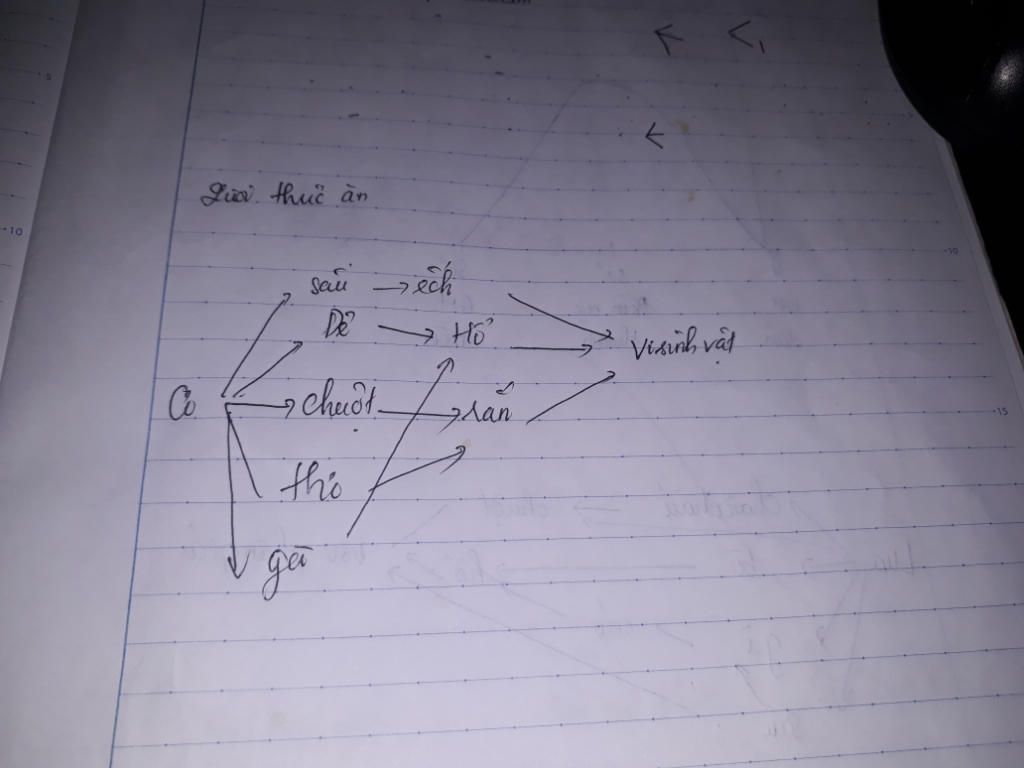 Lưới thức ăn
sâu → ếch
Dê → Hổ
Vi sinh vật
Cỏ → chuột → rắn
thỏ
gà